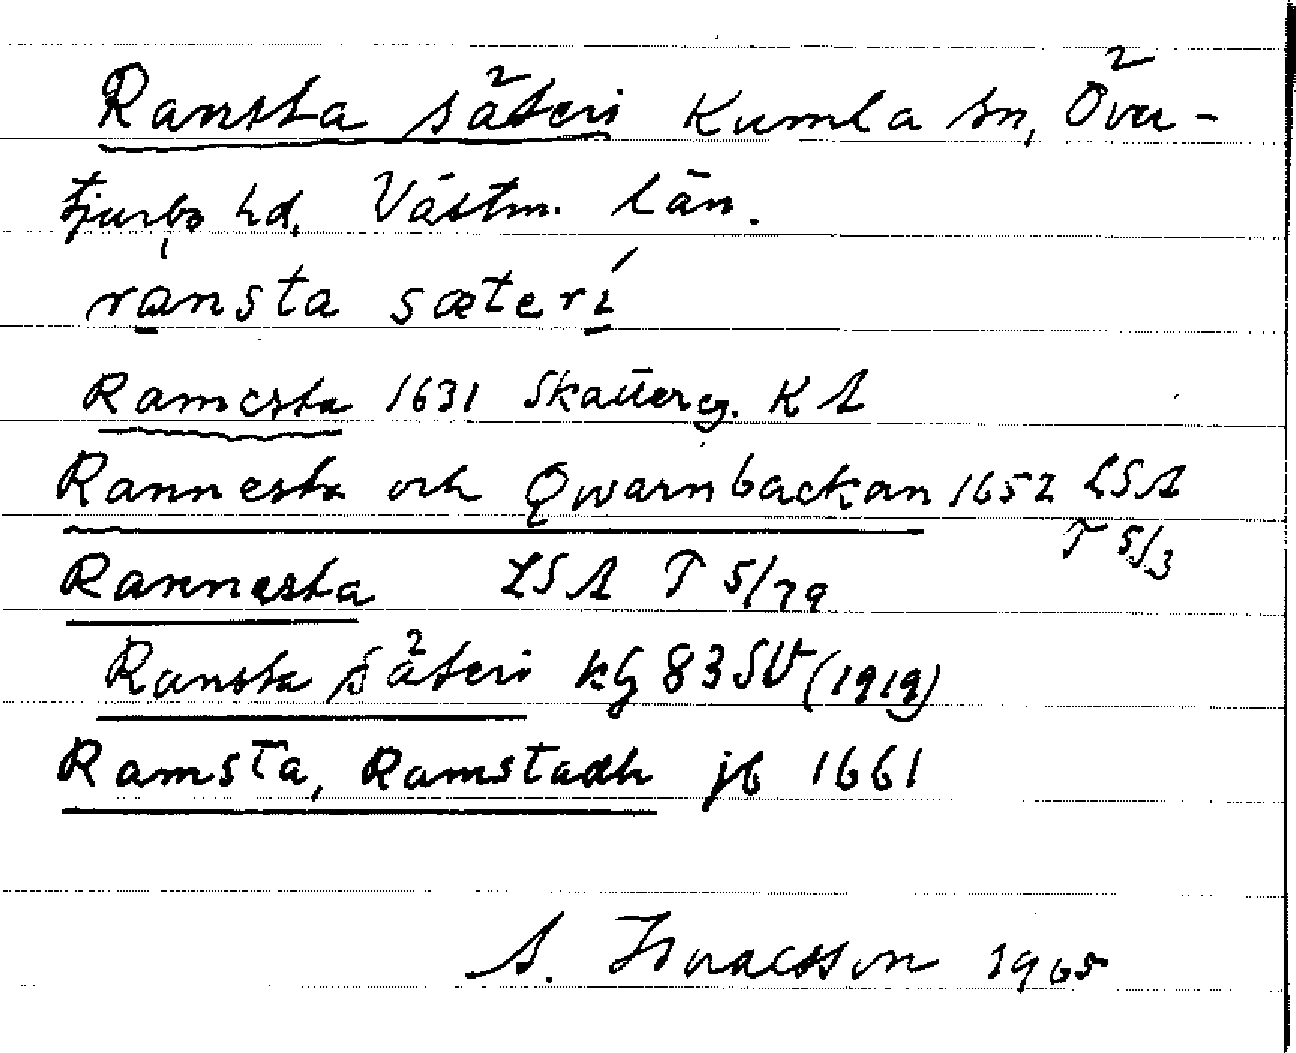 Ransta säteri Kumla sn, Över-
tjurbo hd, Västm. län.
ransta sæterí
Ramesta 1631 Skatter eg. KA
Rannesta och Qwarnbackan 1652 LSA
T 5/3
Rannesta LSA T 5/79
Ransta säteri kG 83SV (1919)
Ramsta, Ramstadh jb 1661
A. Isaacsson 1965